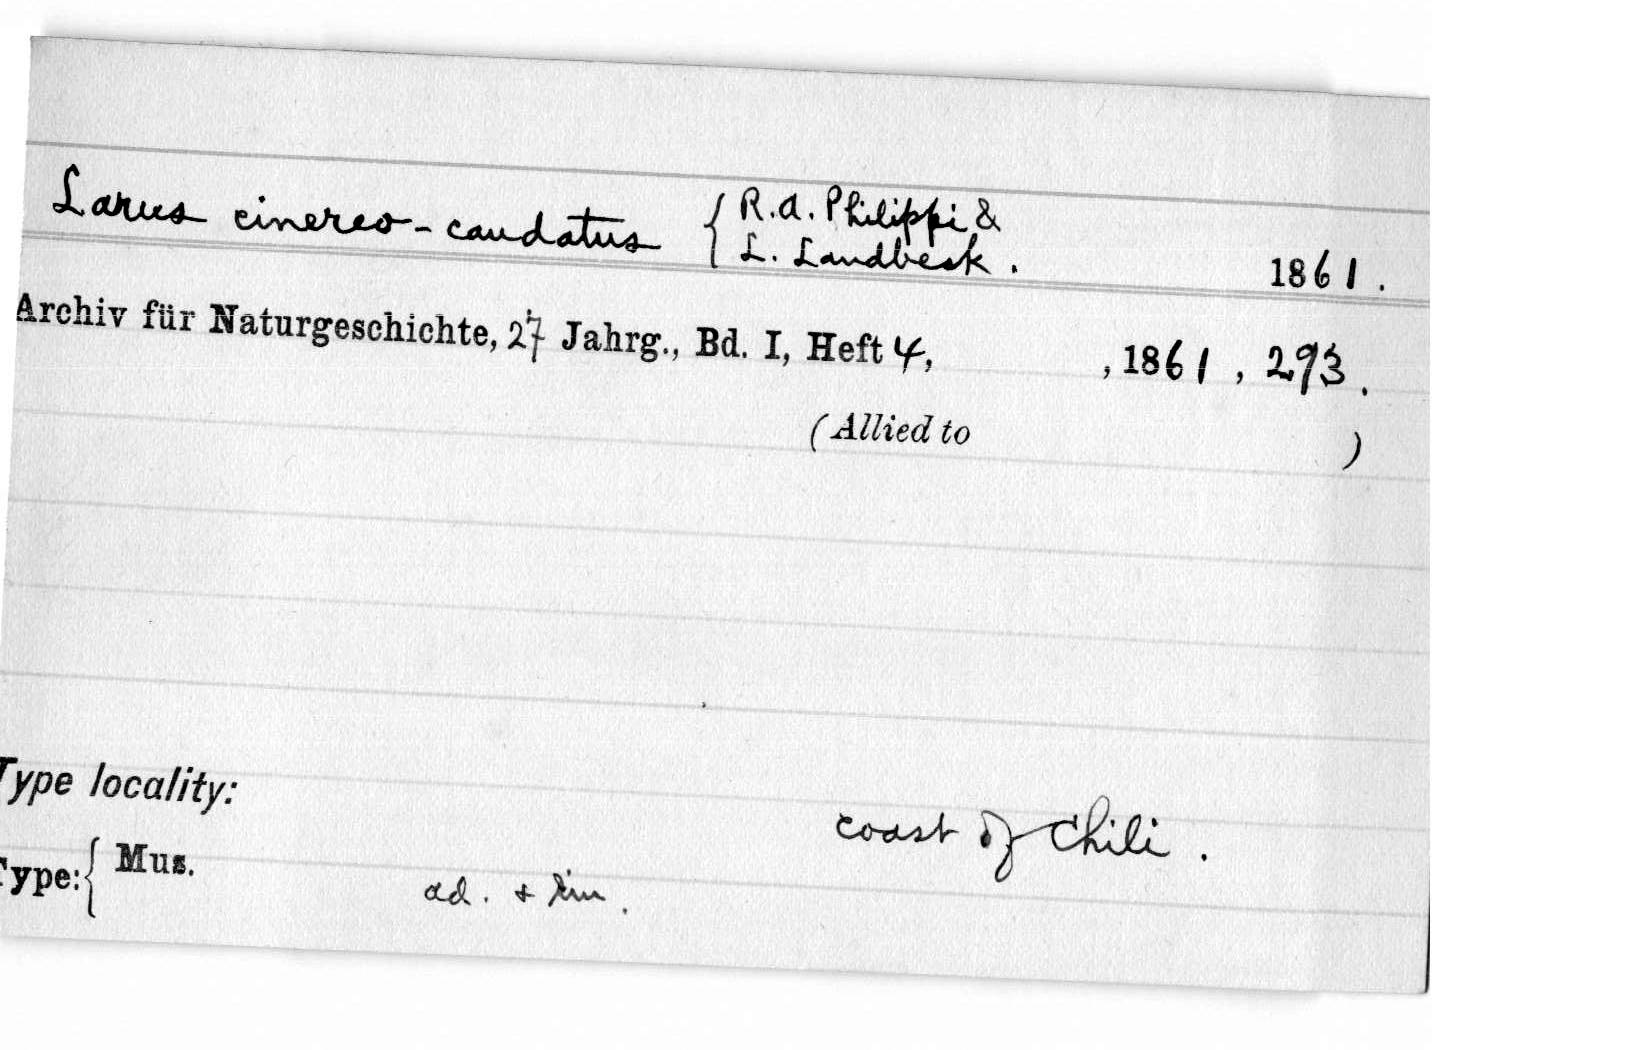 Larus cinereo-caudatus { R.A. Philippi &
L. Landbeck. 1861.
Archiv für Naturgeschichte, 27 Jahrg., Bd. I, Heft 4, , 1861, 293.
(Allied to )
Type locality:
coast of Chili.
Type: { Mus.
ad. &